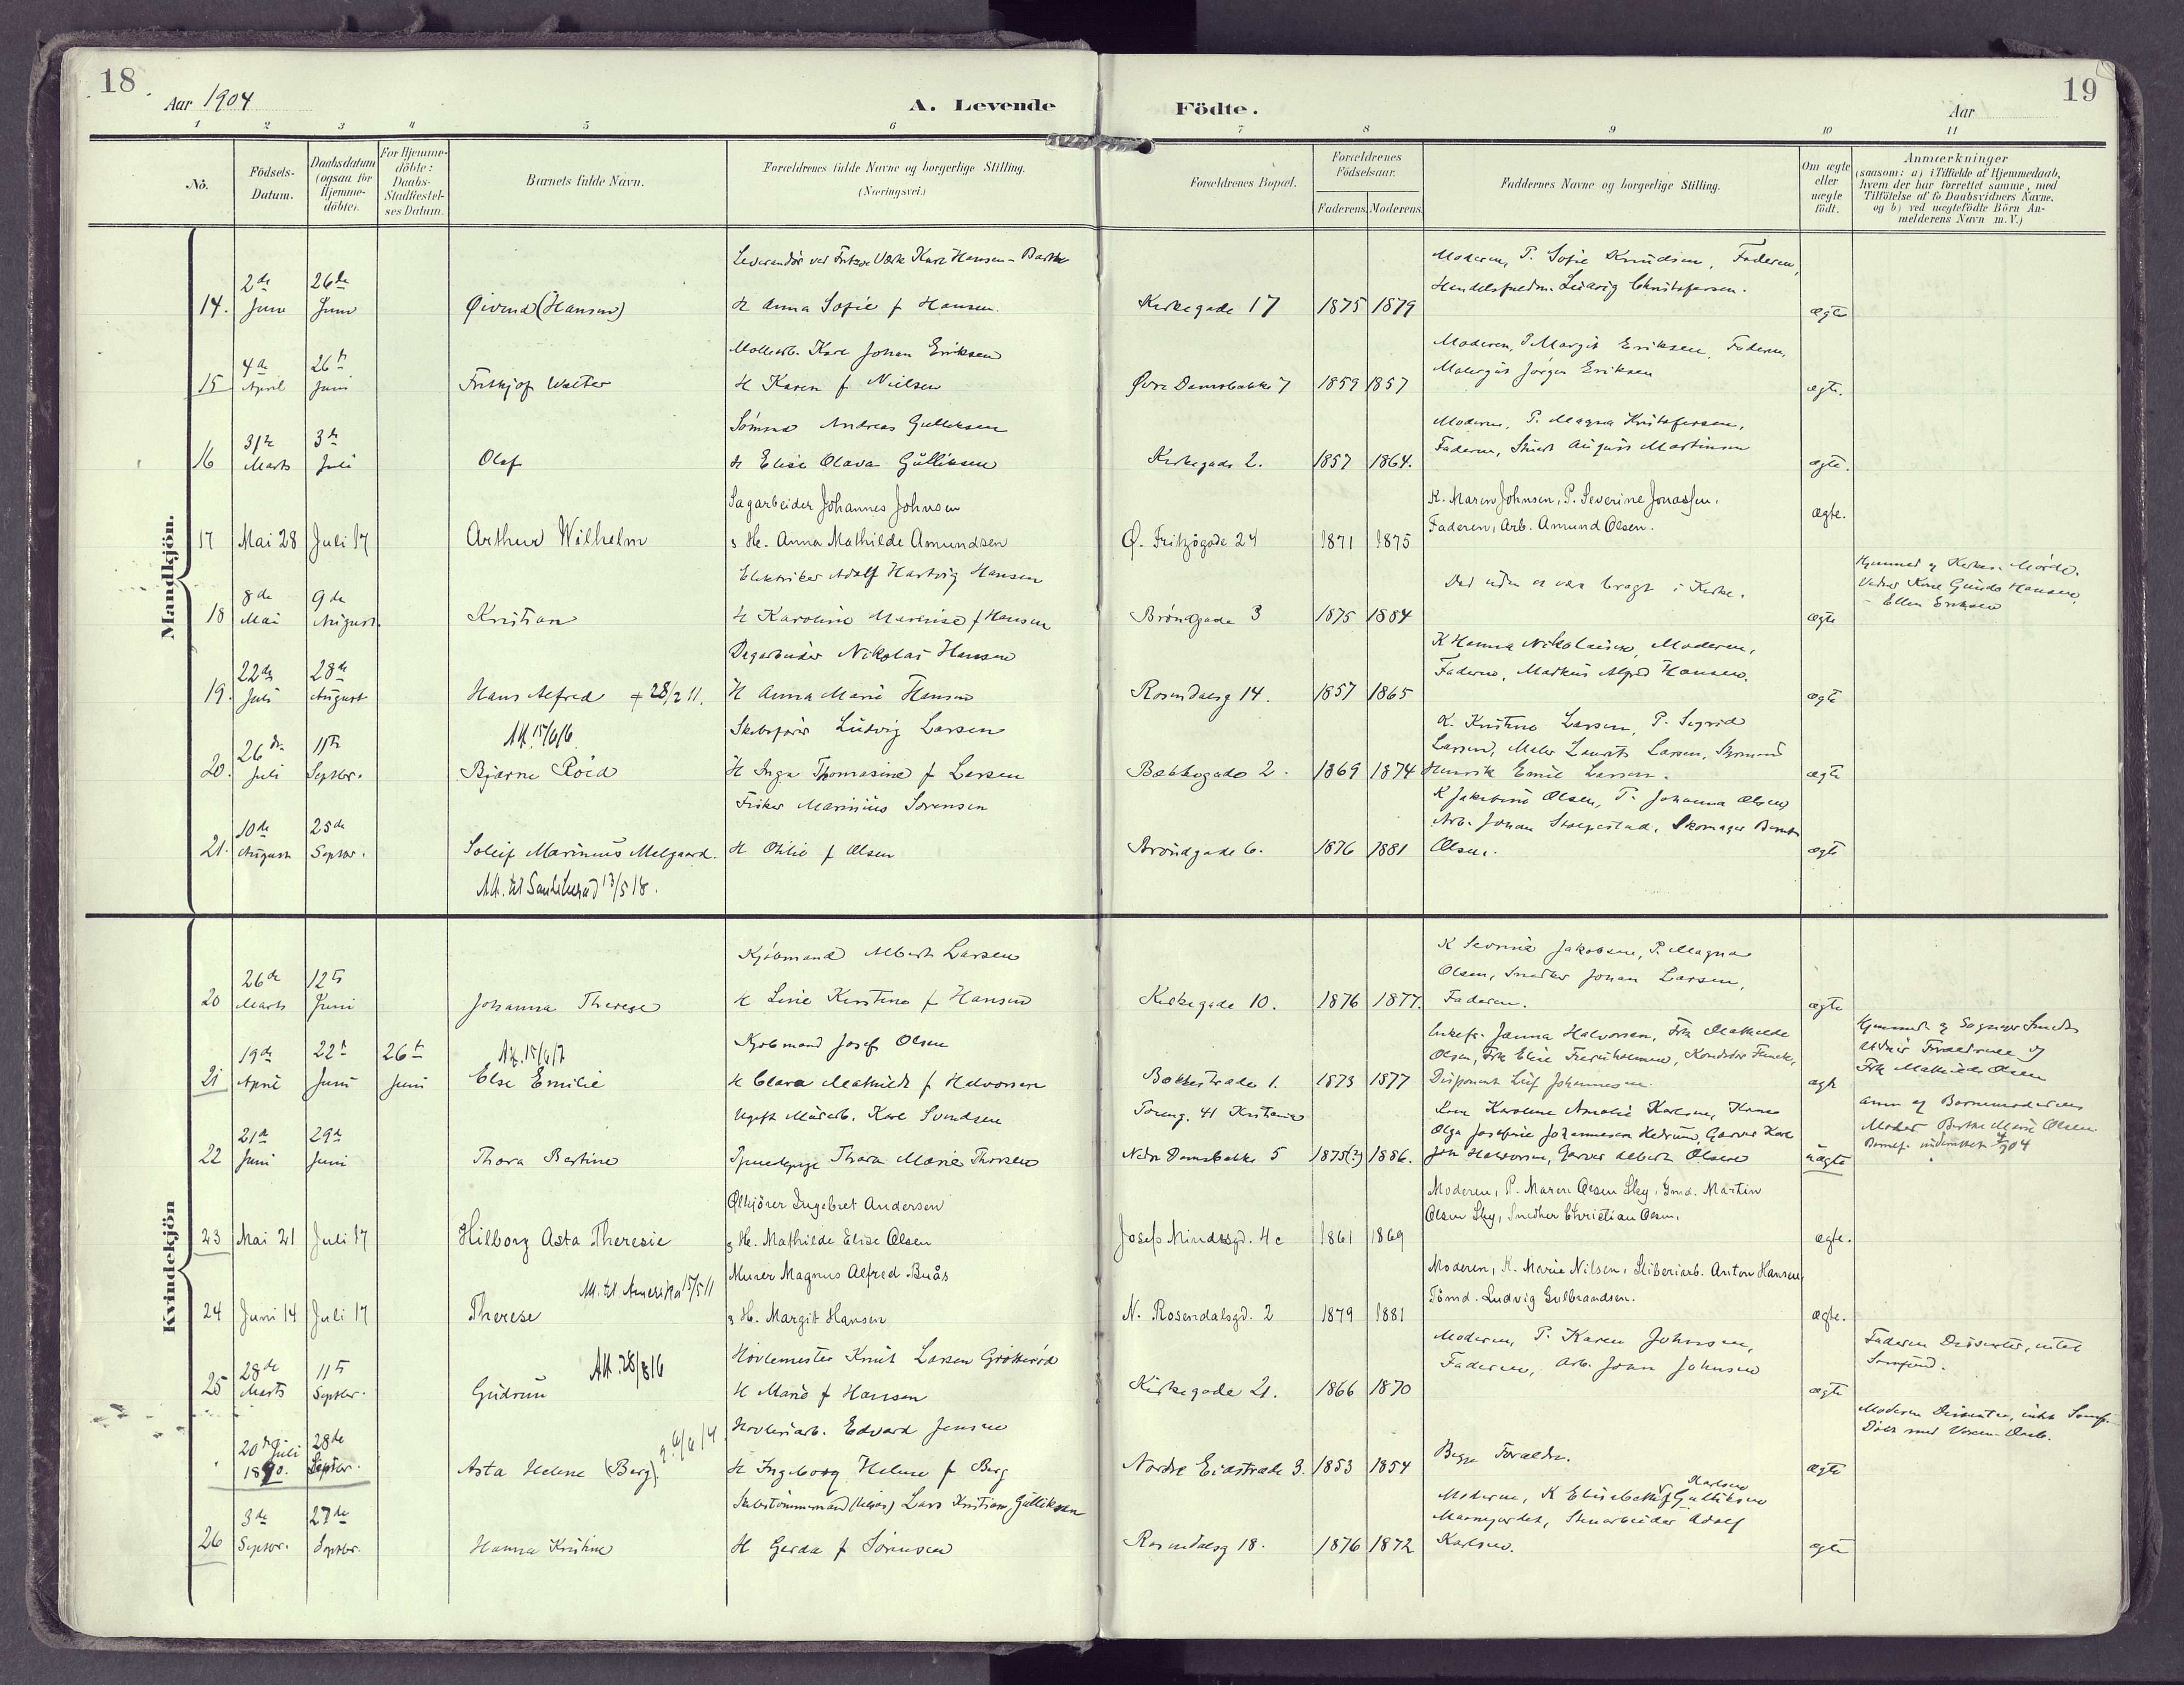 18
Aar 1904
A. Levende
Födte.
Aar
19
1 2 3 4 5 6 7 8 9 10 11
Nô.
Födsels-Datum.
Daabsdatum (ogsaa for Hjemme-döbte).
For Hjemme-döbte: Daabs-Stadfæstel-ses Datum.
Barnets fulde Navn.
Forældrenes fulde Navne og borgerlige Stilling.
(Næringsvei.)
Forældrenes Bopæl.
Forældrenes Födselsaar.
Faderens. Moderens.
Faddernes Navne og borgerlige Stilling.
Om ægte eller uægte födt.
Anmærkninger
(saasom: a) i Tilfælde af Hjemmedaab,
hvem der har forrettet samme, med
Tilföielse af to Daabsvidners Navne,
og b) ved uægtefödte Börn An-
melderens Navn m. V.)
Mandkjön.
Leverandør ved Fritzøe Værk Karl Hansen - Barthe
Moderen, P. Sofie Knudsen, Faderen,
14. 2de Juni 26de Juni Øivind (Hansen) H Anna Sofie f Hansen. Kirkegade 17 1875 1879 Ludvig Christofersen. ægte
Karl Johan Eriksen
Moderen, P Margit Eriksen, Faderen,
15 4de April 26t Juni Frithjof Walter H Karen f Nielsen Øvre Damsbakke 7 1859 1857 Jørgen Eriksen ægte.
Sømand Andreas Gulliksen
Moderen, P. Magna Kristofersen,
16 31te Marts 3de Juli Olaf H Elise Olava Gulliksen Kirkegade 2. 1857 1864. Faderen, August Martinsen ægte.
Sagarbeider Johannes Johnsen
K. Maren Johnsen, P. Severine Jonassen.
17 Mai 28 Juli 17 Arthur Wilhelm & H. Anna Mathilde Amundsen Ö. Fritzögade 24 1871 1875 Faderen, Arb. Amund Olsen. ægte.
Elektriker Adolf Hartvig Hansen
Död uden at være bragt i Kirke.
18 8de Mai 9de August. Kristian H Karoline f Hansen Brøndgade 3 1875 1884 ægte
Ellen Eriksen
Nikolai Hansen
K Hanna Nikolaisen, Moderen,
19. 22de Juli 28de August Hans Alfred + 28/2 11. H Anna Marie Hansen Rosendalsg 14. 1857 1865 Faderen, Markus Alfred Hansen. ægte
Att. 15/6 16
Skibsfører Ludvig Larsen
K. Kristine Larsen, P. Sigrid
Larsen, Maler Laurits Larsen, Styrmand
20. 26de Juli 11te Septbr. Bjarne Röed H Inga Thomasine f Larsen Bækkegade 2. 1869 1874 Henrik Emil Larsen. ægte
Fisker Marinius Sørensen
K Jakobine Olsen, P. Johanna Olsen
Arb. Johan Skomager Bernt
21. 10de August 25de Septbr. Soleif Marinius Melgaard. H Othilie f Olsen Brøndgade 6. 1876 1881 Olsen. ægte
Att. til Sauherad 13/5 18.
Kvindekjön
Kjøbmand Albert Larsen
K Severine Jakobsen, P. Magna
Olsen, Snedker Johan Larsen,
20 26de Marts 12te Juni Johanna Therese H Line Kirstine f Hansen Kirkegade 10. 1876 1877. Faderen. ægte
Att. 15/6 17
Kjøbmand Josef Olsen
Janna Halvorsen, Frk Mathilde
Olsen, Frk Elise
21 19de April 22t Juni 26t Juni Else Emilie H Clara Mathilde f Halvorsen Bøkkestræde 1. 1873 1877 Disponent Leif Johannesen ægte
Frk Mathilde Olsen
Ugift Murarb. Karl Svendsen
Toreng. 41 Kristiania
Karoline Amalie Karlsen, Kone
Olga Josefine Johannesen Hedrum, Garver Karl
22 21de Juni 29de Juni Thora Bertine Tjenestepige Thora Marie Thorsen Nedre Damsbakke 5 1875(?) 1886. Halvorsen, Garver Albert Olsen uægte
Anm af Barnemoderens
Moder Berthe Marie Olsen
Ølkjörer Ingebret Andersen
Moderen, P. Maren Olsen Sky, Gmd. Martin
23 Mai 21 Juli 17 Hilborg Asta Theresie & H. Mathilde Elise Olsen Josefs Mindesgd. 4 c 1861 1869 Olsen Sky, Snedker Christian Olsen. ægte.
Att. til Amerika 15/5 11
Murer Magnus Alfred Buås
Moderen, K. Marie Nilsen, Sliberiarb. Anton Hansen,
24 Juni 14 Juli 17 Therese & H. Margit Hansen N. Rosendalsgd. 2 1879 1881 Tömd. Ludvig Gulbrandsen. ægte.
Att. 28/8 16
Høvlemester Knut Larsen Grøtterød
Moderen, P. Karen Johnsen,
Faderen Dissenter, intet Samfund.
25 28de Marts 11te Septbr. Gudrun H Marie f Hansen Kirkegade 21. 1866 1870 Faderen, Arb. John Johnsen ægte
Høvleriarb. Edvard Jensen
Moderen Dissenter, intet Samf.
Døbt med Voxen-Daab.
20de Juli 1890. 28de Septbr. Asta Helene (Berg) H Ingeborg Helene f Berg Nordre Eidstræde 3. 1853 1854 Begge Forældre. ægte
Skibstømmermand Lars Kristian Gulliksen
Moderen, K Elisabeth Gulliksen
Karlsen
26 3de Septbr. 27de Septbr. Hanna Kristine H Gerda f Sörensen Rosendalsg 18. 1876 1872 Stenarbeider Adolf Karlsen. ægte